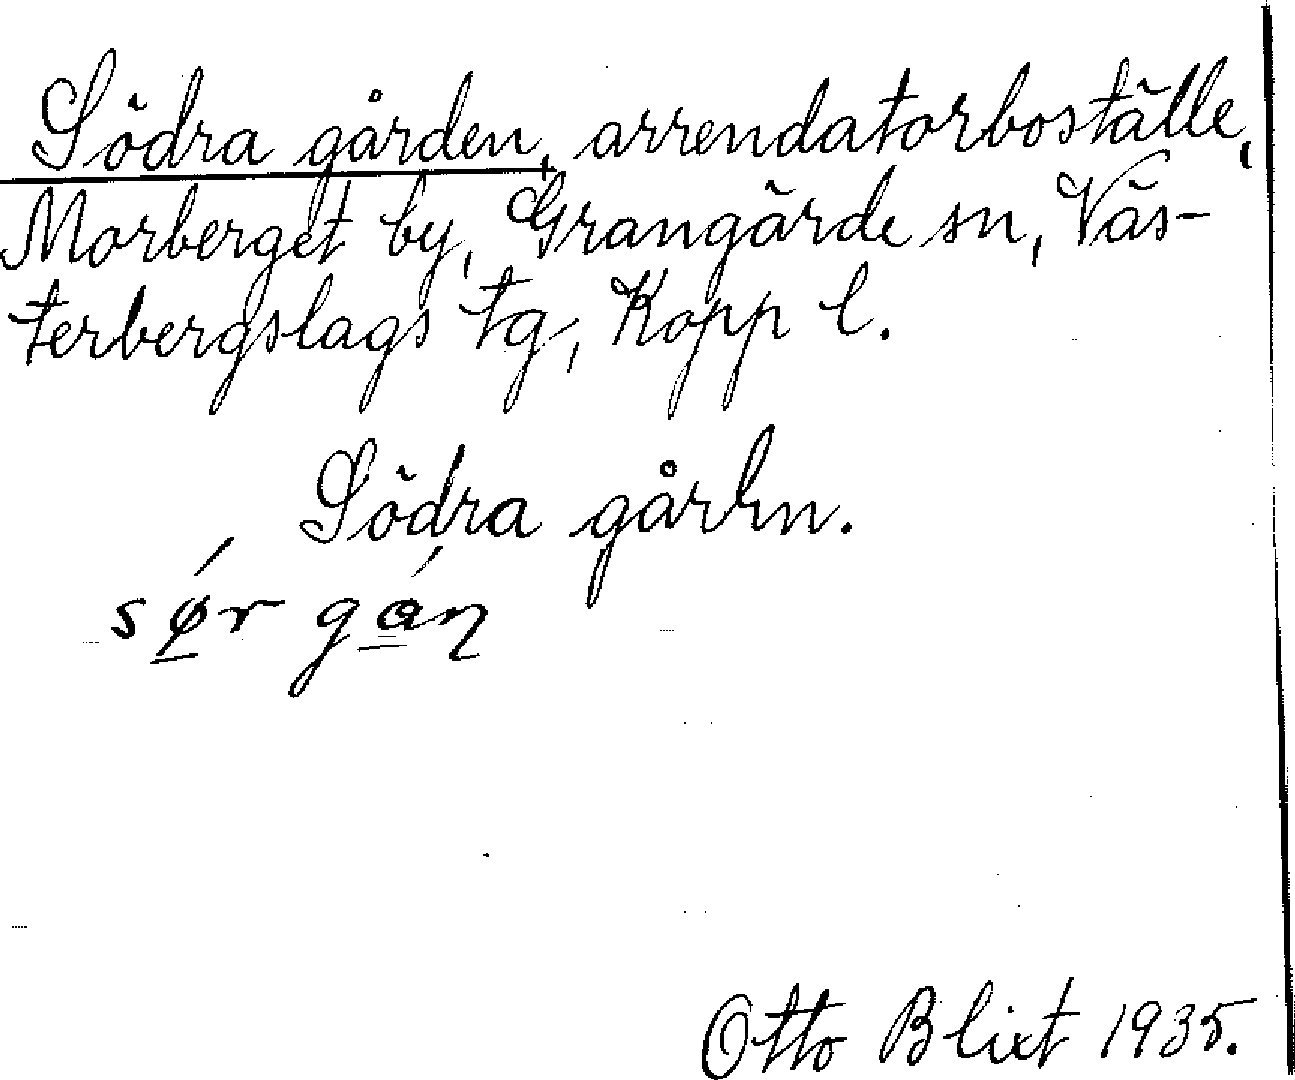 Södra gården, arrendatorboställe,
Morberget by, Grangärde sn, Väs-
terbergslags tg, Kopp l.
Södra gårdn.
sǿr gán
Otto Blixt 1935.